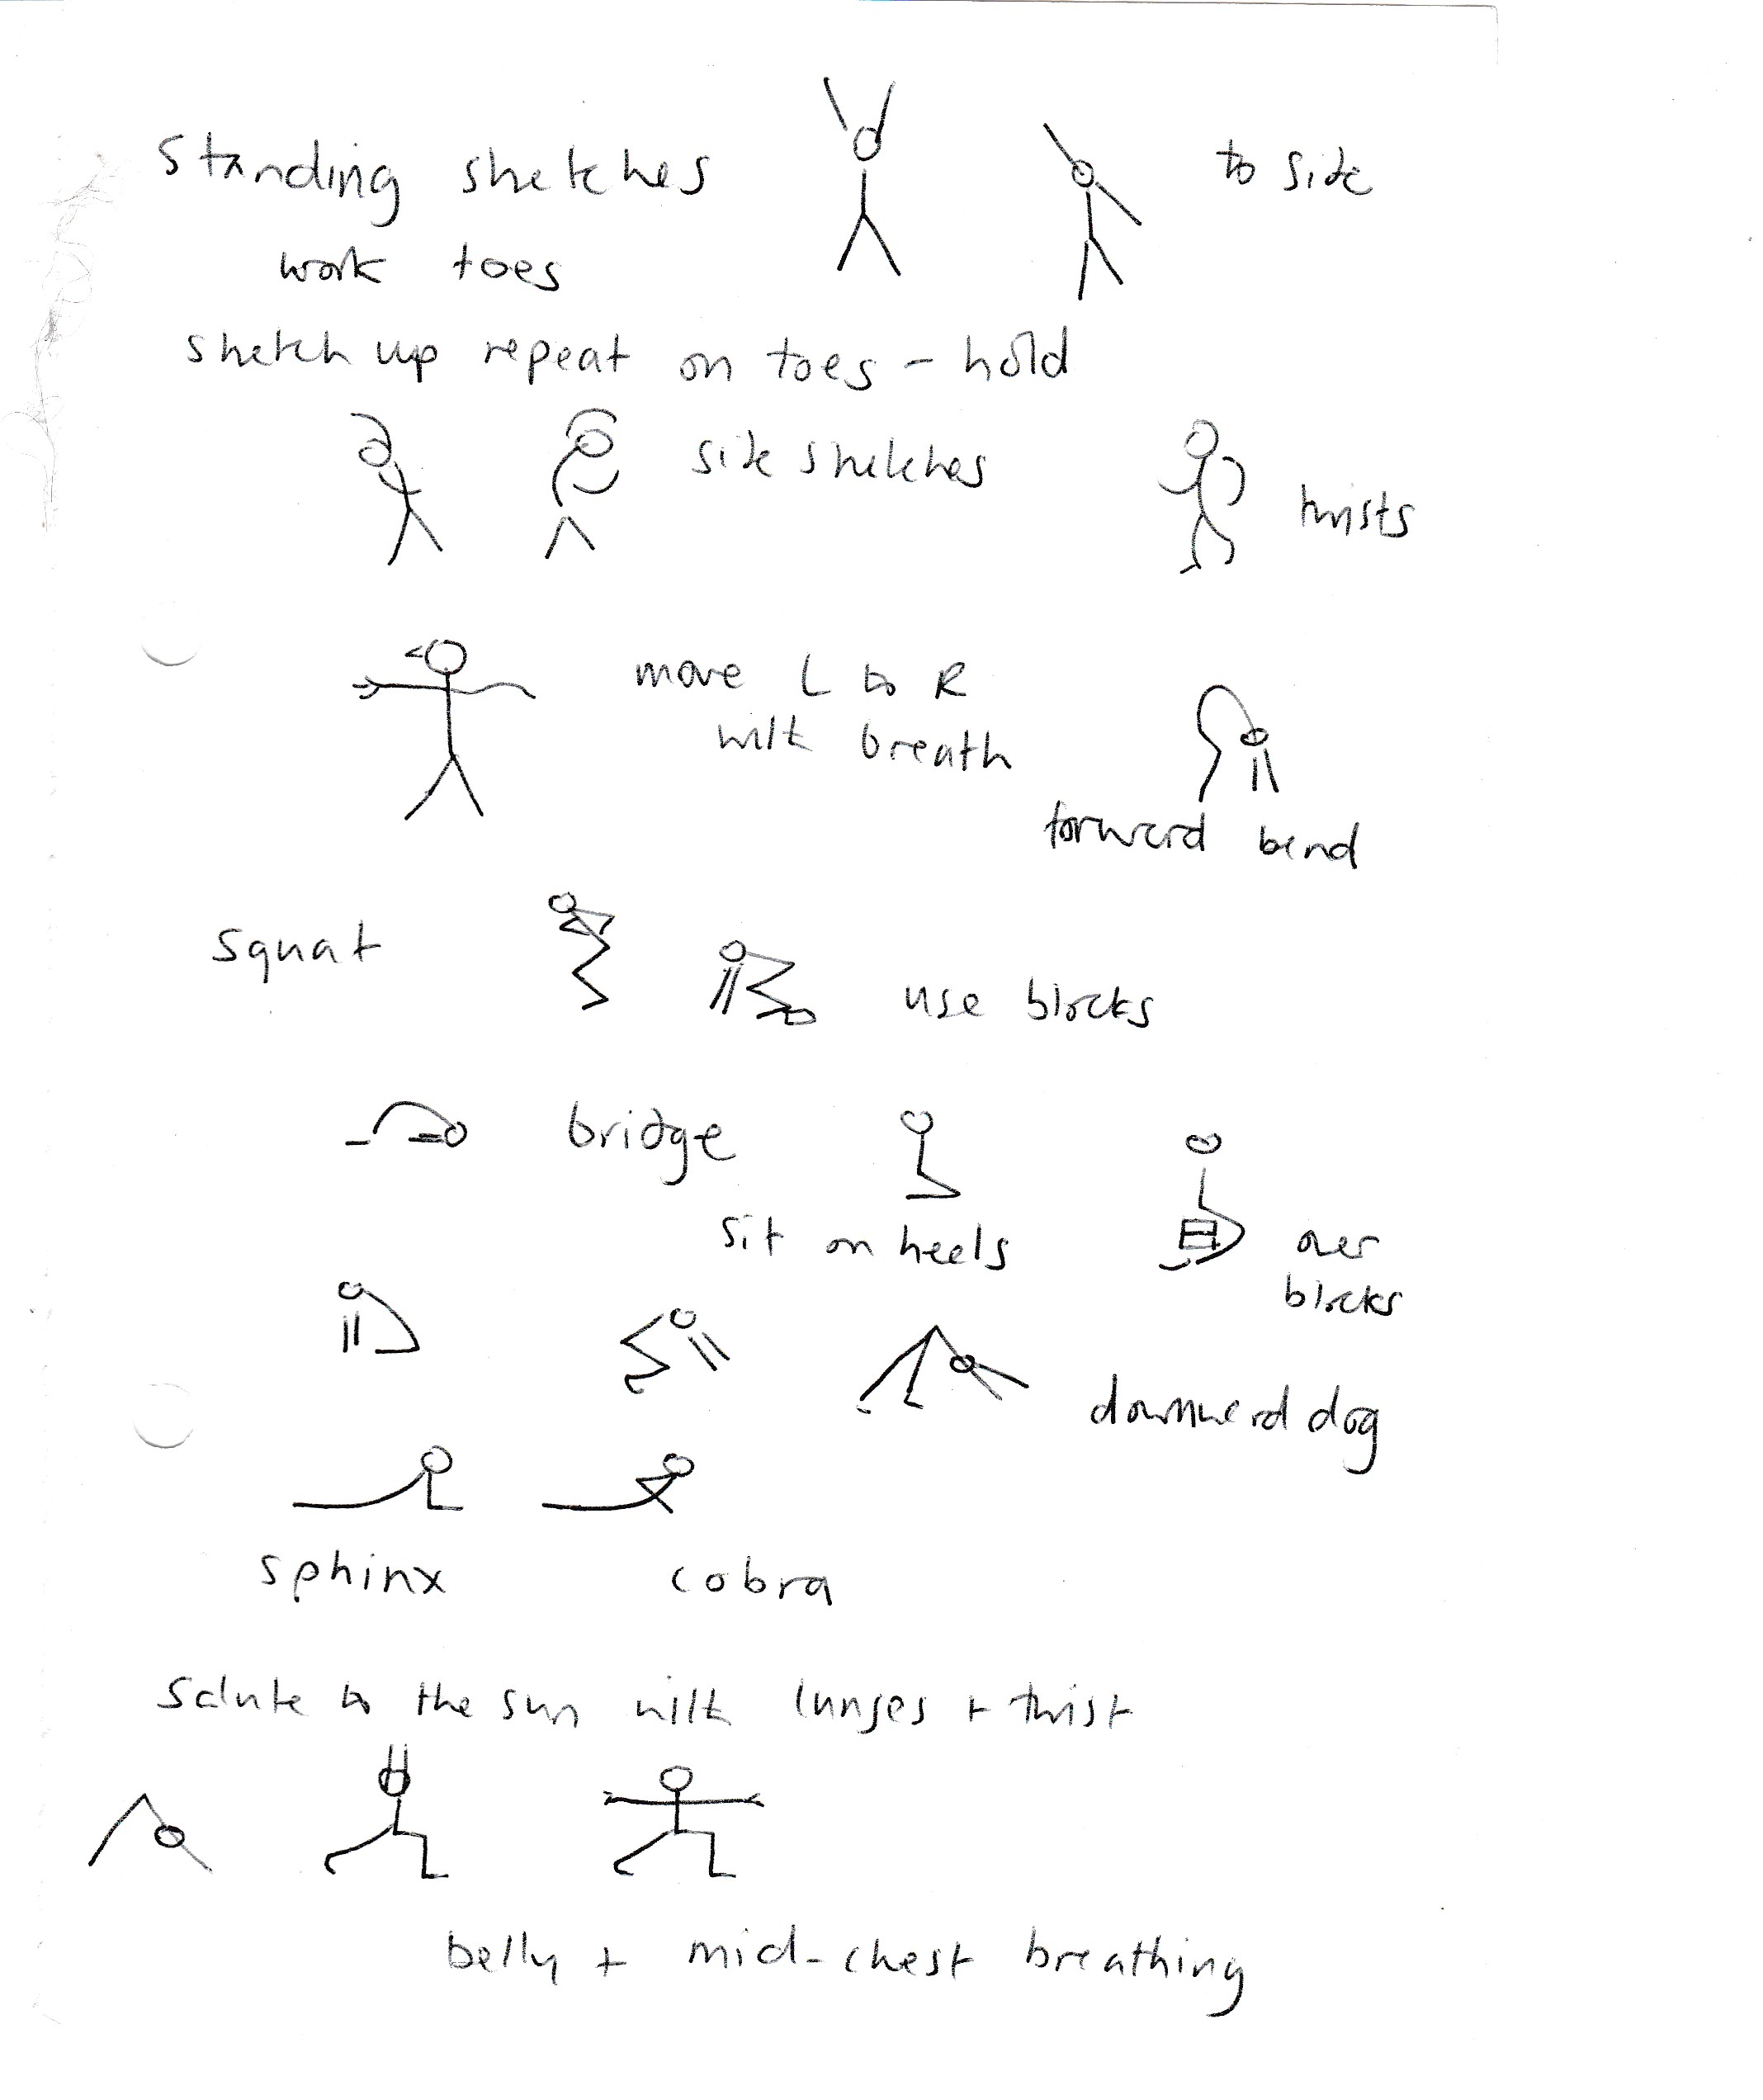 Standing stretches
to side
work toes
stretch up repeat on toes - hold
side stretches
twists
move L to R
with breath
forward bend
squat
use blocks
bridge
sit on heels
over
blocks
downward dog
sphinx
cobra
salute to the sun with lunges + twist
belly + mid-chest breathing